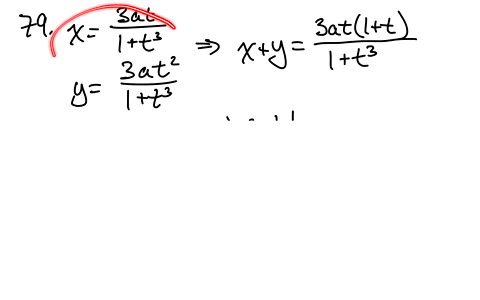 79. x = 3at / 1+t³ ⇒ x+y = 3at(1+t) / 1+t³
y = 3at² / 1+t³